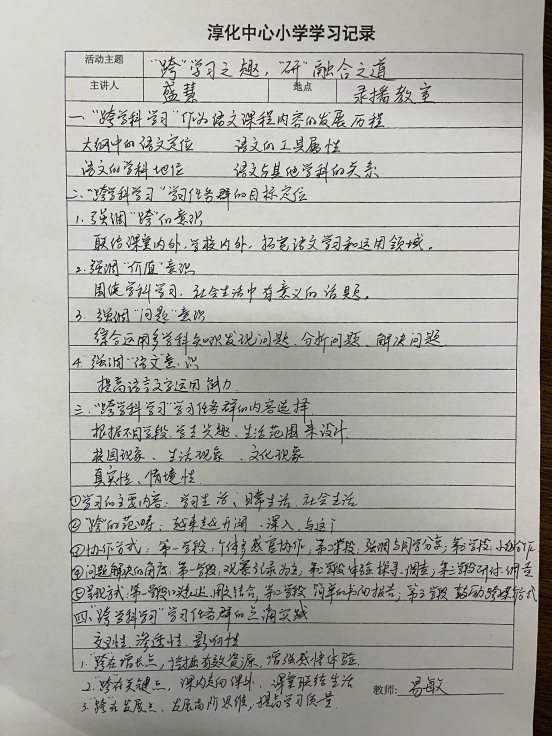 淳化中心小学学习记录
活动主题 “跨”学习之趣，“研”融合之道
主讲人 盛慧 地点 录播教室
一、“跨学科学习”作为语文课程内容的发展历程
大纲中的语文定位 语文的工具属性
语文的学科地位 语文与其他学科的关系
二、“跨学科学习”学习任务群的目标定位
1.强调“跨”的意识
联结课堂内外，学校内外，拓宽语文学习和运用领域。
2.强调“价值”意识
围绕学科学习，社会生活中有意义的话题。
3.强调“问题”意识
综合运用多学科知识发现问题、分析问题、解决问题
4.强调“语文意识
提高语言文字运用能力
三、“跨学科学习”学习任务群的内容选择
根据不同学段，学生兴趣、生活范围来设计
校园现象、生活现象、文化现象
真实性、情境性
①学习的主要内容：学习生活、日常生活、社会生活
②“跨”的范畴：越来越开阔、深入、与这个
③协作方式：第一学段：个体多感官协作，第二学段：强调与同学分享，第三学段：小组合作
④问题解决的角度：第一学段：观察记录为主，第二学段体验、探寻、调查，第三学段研讨、调查
⑤呈现方式：第一学段以表述，图文结合，第二学段 简单的书面报告，第三学段 鼓励跨媒介形式
四、“跨学科学习”学习任务群的点滴实践
交叉性、渗透性、影响性
1.跨在增长点，挖掘有效资源，增强感性体验
2.跨在关键点，课内走向课外，课堂联结生活
3.跨在发展点，发展高阶思维，提高学习质量
教师：易敏